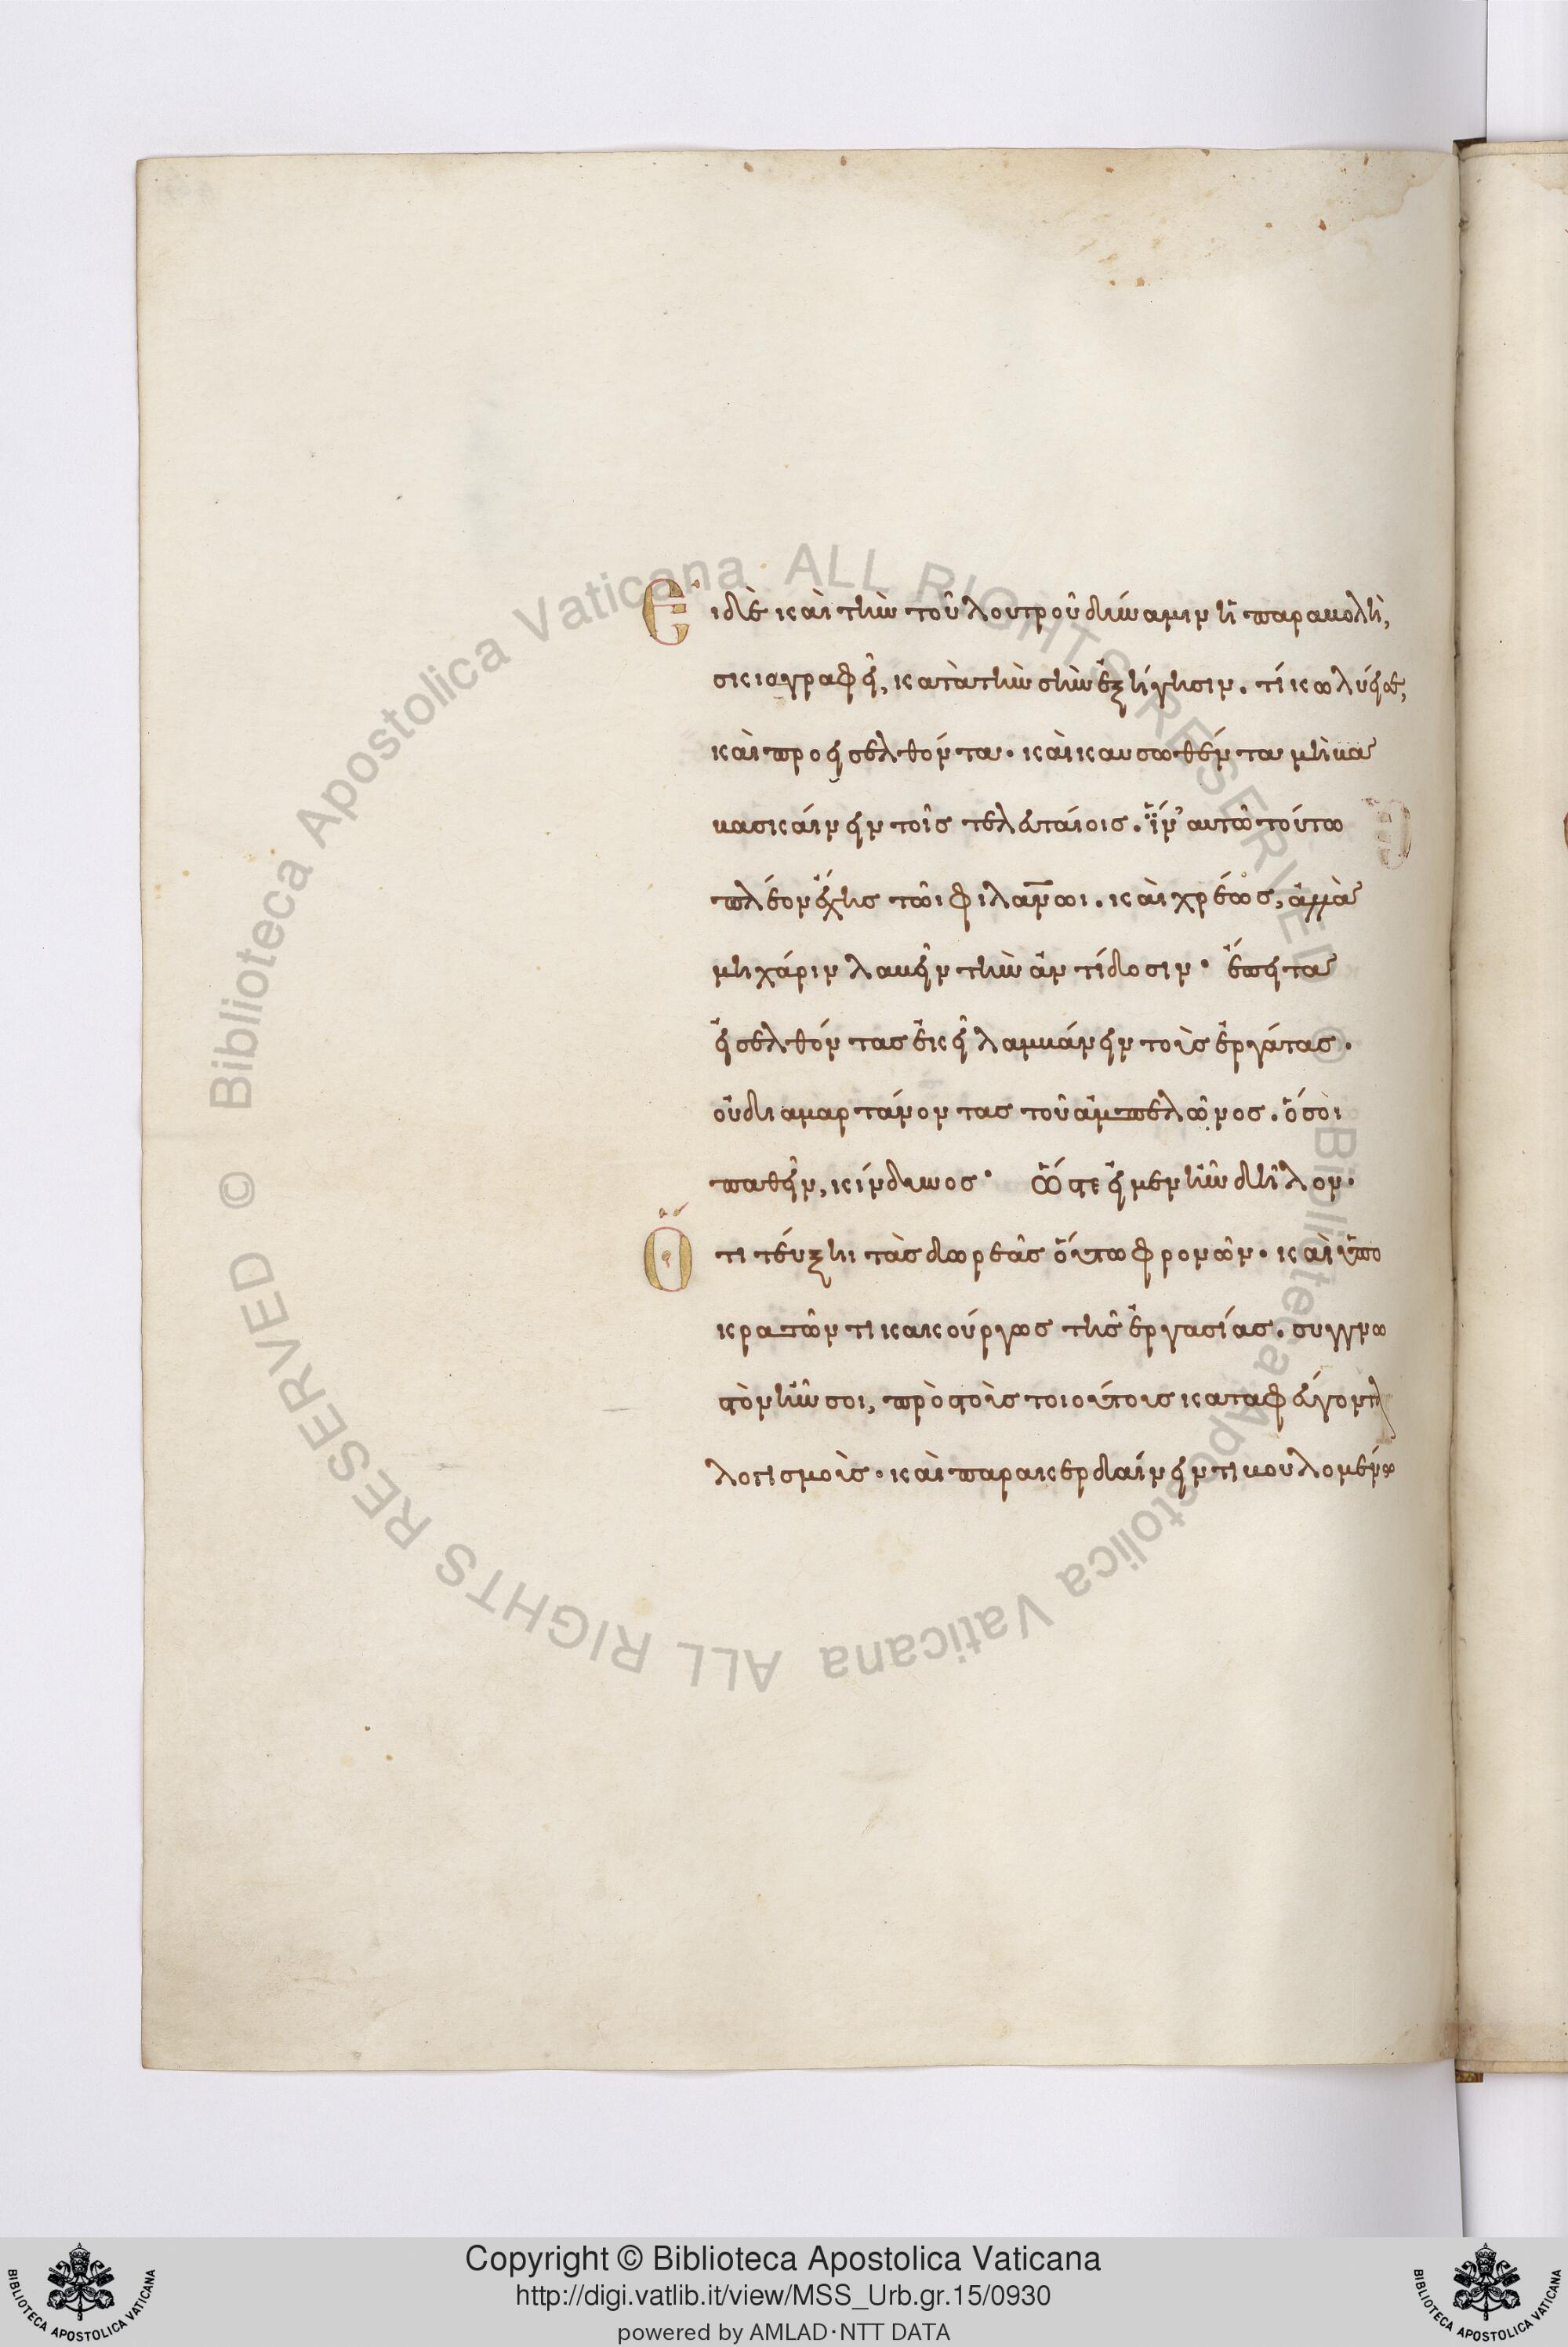 Εἰ δὲ καὶ τὴν τοῦ λουτροῦ δύναμιν ἡ παραβολὴ,
σκιαγραφεῖ, κατὰ τὴν σὴν ἐξήγησιν. τί κωλύει σε,
καὶ προεισελθόντα. καὶ καυσωθέντα μὴ βα
σκαίνειν τοῖς τελευταίοις. ἵν' αὐτῶ τούτω
πλέον ἔχης τῶι φιλανωι. καὶ χρέως, ἀλλὰ
μὴ χάριν λαβεῖν τὴν ἀντίδοσιν. ἔπειτα
εἰσελθόντας ἐκεῖ λαμβάνειν τοὺς ἐργάτας.
οὐ διαμαρτάνοντας τοῦ ἀμπελῶνος. ὅσοι
παθεῖν, κίνδυνος. ὥστε εἰ μὲν ἦν δῆλον.
Ὅτι τεύξη τὰς δωρεᾶς οὕτω φρονῶν. καὶ ὑπο
κρατῶν τι κακούργως τῆς ἐργασίας. συγγνω
στὸν ἦν σοι, πρὸς τοὺς τοιούτους καταφεύγοντι
λογισμοὺς. καὶ παρακερδαίνειν τι βουλομένω
Copyright © Biblioteca Apostolica Vaticana
http://digi.vatlib.it/view/MSS_Urb.gr.15/0930
powered by AMLAD·NTT DATA
BIBLIOTECA APOSTOLICA VATICANA
BIBLIOTECA APOSTOLICA VATICANA
© Biblioteca Apostolica Vaticana ALL RIGHTS RESERVED © Biblioteca Apostolica Vaticana ALL RIGHTS RESERVED